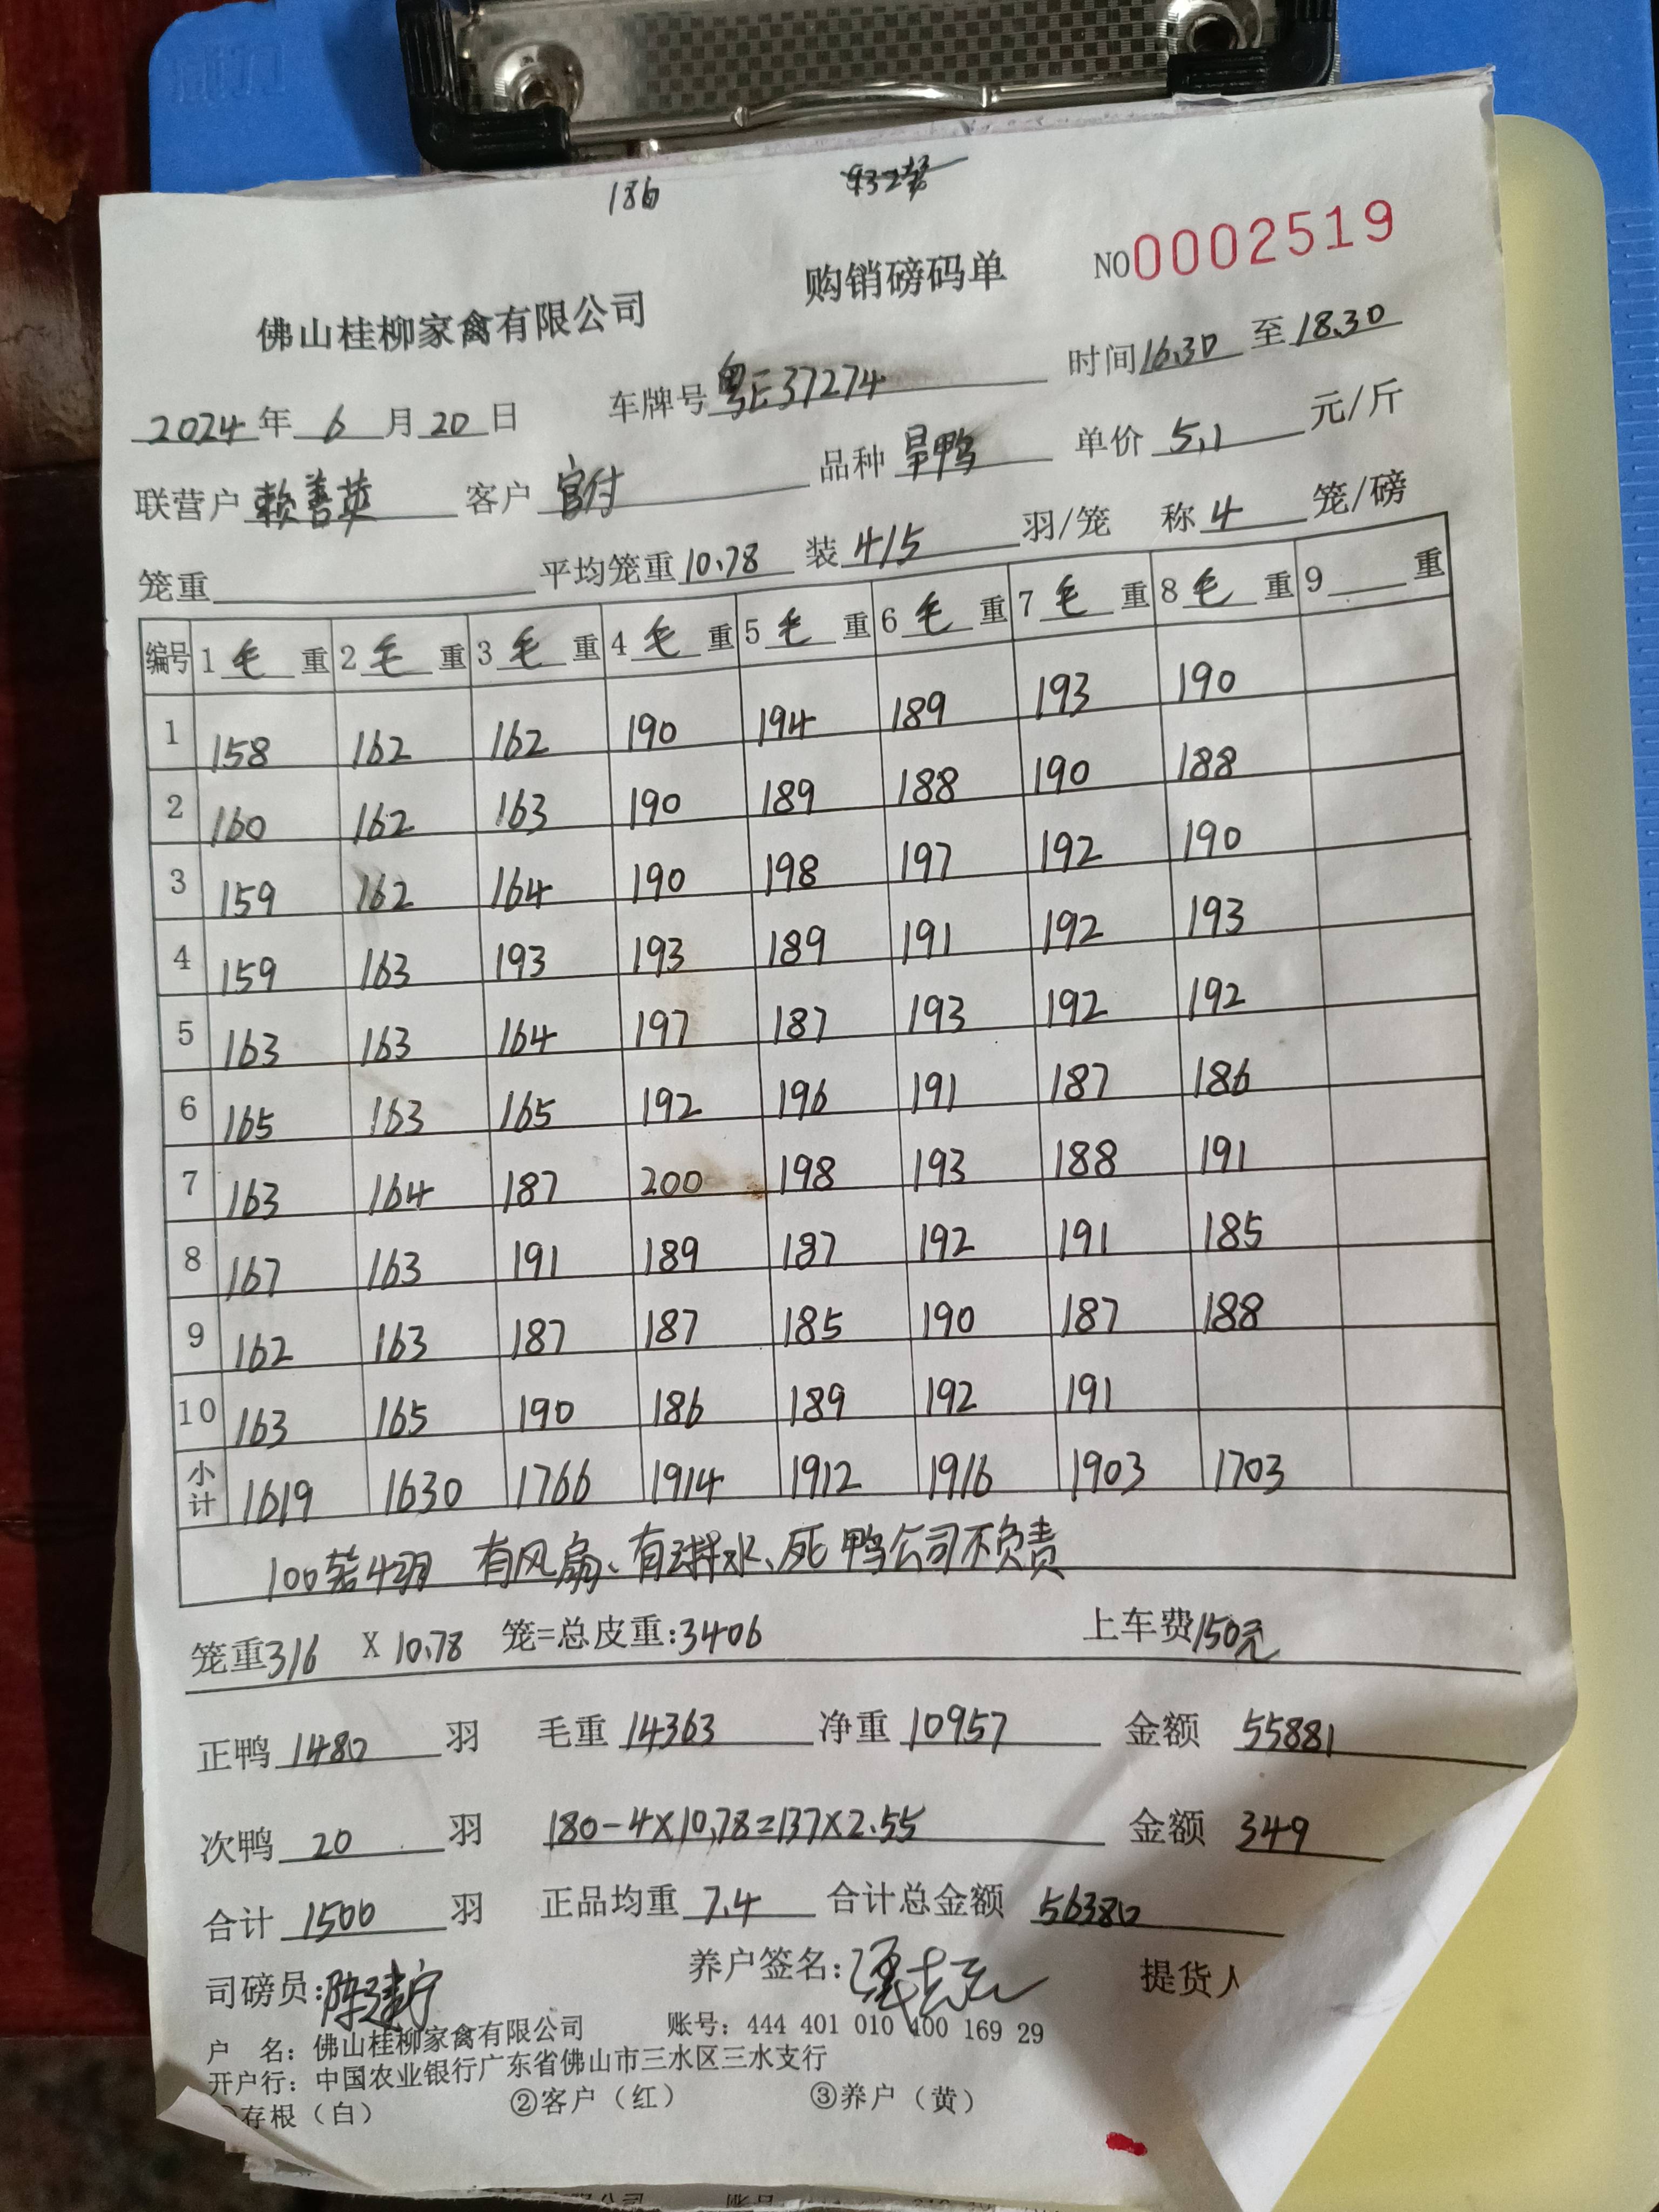 186 932笼
购销磅码单 NO0002519
佛山桂柳家禽有限公司
2024年 6月20日 车牌号粤E37274 时间16.30至18.30
联营户 赖善英 客户 官付 品种 旱鸭 单价 5.1 元/斤
笼重 平均笼重10.78 装4/5 羽/笼 称4 笼/磅
编号 1毛重 2毛重 3毛重 4毛重 5毛重 6毛重 7毛重 8毛重 9 重
1 158 162 162 190 194 189 193 190
2 160 162 163 190 189 188 190 188
3 159 162 164 190 198 197 192 190
4 159 163 193 193 189 191 192 193
5 163 163 164 197 187 193 192 192
6 165 163 165 192 196 191 187 186
7 163 164 187 200 198 193 188 191
8 167 163 191 189 187 192 191 185
9 162 163 187 187 185 190 187 188
10 163 165 190 186 189 192 191
小计 1619 1630 1766 1914 1912 1916 1903 1703
100笼4羽 有风扇、有淋水、死鸭公司不负责
笼重316 X 10.78 笼=总皮重:3406 上车费150元
正鸭 1480 羽 毛重 14363 净重 10957 金额 55881
次鸭 20 羽 180-4×10.78=137×2.55 金额 349
合计 1500 羽 正品均重 7.4 合计总金额 56380
司磅员:陈建宁 养户签名: 提货人
户 名：佛山桂柳家禽有限公司 账号：444 401 010 400 169 29
开户行：中国农业银行广东省佛山市三水区三水支行
存根（白） ②客户（红） ③养户（黄）